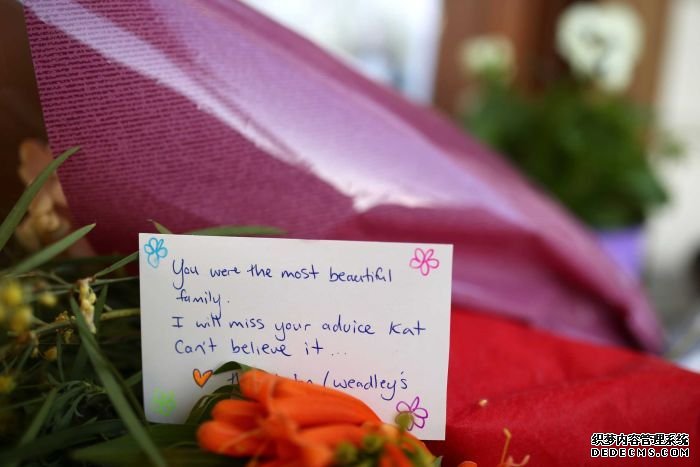 You were the most beautiful
family.
I will miss your advice Kat
Can't believe it...
/weadley's
织梦内容管理系统
DEDECMS.COM